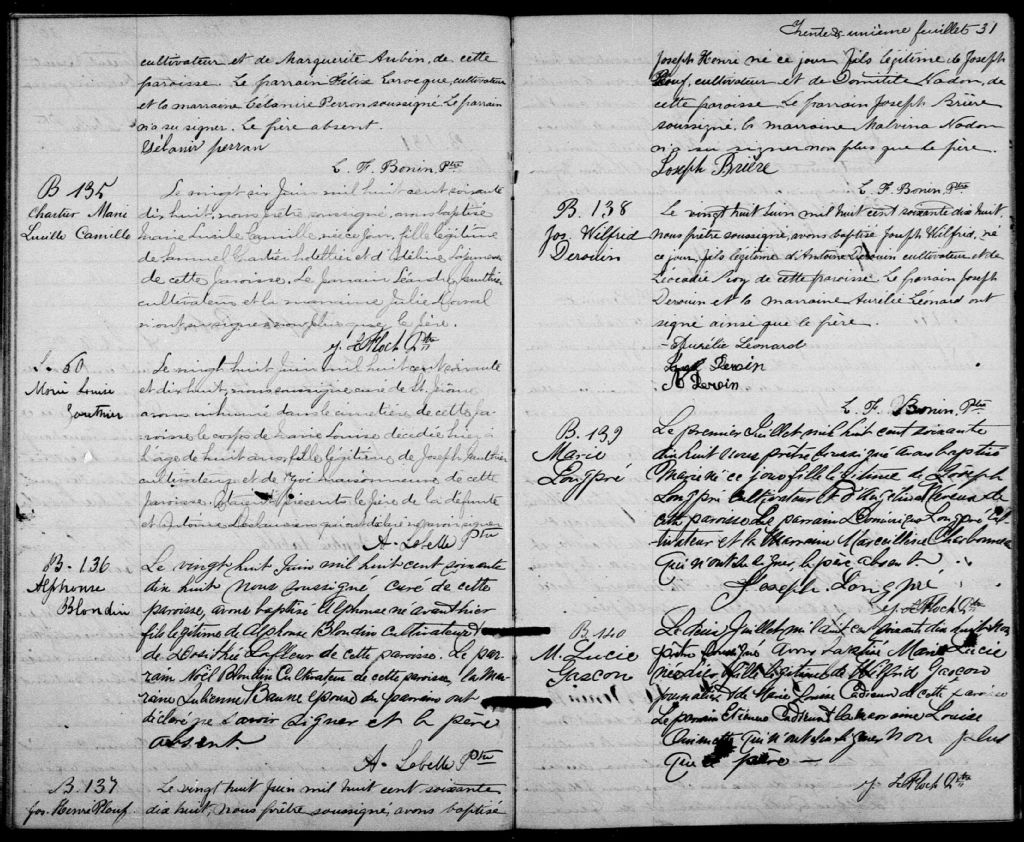 cultivateur et de Marguerite Aubin, de cette
paroisse. Le parrain Félix Larocque, cultivateur
et la marraine Célanire Perron soussigné. Le parrain
n'a su signer. Le père absent.
Célanir perran
L. F. Bonin, Ptre
B 135
Chartier Marie
Lucille Camille
Le vingt six Juin mil huit cent soixante
dix huit, nous prêtre soussigné, avons baptisé
Marie Lucile Camille, née ce jour, fille légitime
de Samuel Chartier hôtellier et d'Odeline
de cette paroisse. Le parrain Léandre Gauthier
cultivateur et la marraine Julie
n'ont su signer non plus que le père.
J. LeFloch Ptre
S. 60
Marie Louise
Gauthier
Le vingt huit Juin mil huit cent soixante
et dix huit, nous soussigné curé de St. Jérôme
avons inhumé dans le cimetière de cette pa-
roisse le corps de Marie Louise décédée hier à
l'âge de huit ans, fille légitime de Joseph Gauthier
cultivateur et de Zoé Maisonneuve de cette
paroisse. Etaient présents le père de la défunte
et Antoine Deslauriers qui ont déclaré ne savoir signer
A. Labelle Ptre
B. 136
Alphonse
Blondin
Le vingt huit Juin mil huit cent soixante
dix huit Nous soussigné curé de cette
paroisse, avons baptisé Alphonse né avant hier
fils légitime de Alphonse Blondin Cultivateur
de Dosithée Lafleur de cette paroisse. Le par
rain Noël Blondin Cultivateur de cette paroisse la Mar
raine épouse du parrain ont
déclaré ne savoir signer et le père
absent.
A. Labelle Ptre
B. 137
Jos. Henri Plouf.
Le vingt huit Juin mil huit cent soixante
dix huit, nous prêtre soussigné, avons baptisé
Trente & unième feuillet 31
Joseph Henri né ce jour fils légitime de Joseph
Plouf, cultivateur et de Domitile Nadon, de
cette paroisse. Le parrain Joseph Brière
soussigné, la marraine Malvina Nadon
n'a su signer non plus que le père.
Joseph Brière
L. F. Bonin, Ptre
B. 138
Jos. Wilfrid
Derouin
Le vingt huit Juin mil huit cent soixante dix huit,
nous prêtre soussigné, avons baptisé Joseph Wilfrid, né
ce jour, fils légitime d'Antoine Derouin cultivateur et de
Léocadie Roy de cette paroisse. Le parrain Joseph
Derouin et la marraine Aurélie Léonard ont
signé ainsi que le père.
Aurélie Léonard
Deroin
Deroin
L. F. Bonin, Ptre
B. 139
Marie
Longpré
Le premier Juillet mil huit cent soixante
dix huit Nous prêtre soussigné avons baptisé
Marie née ce jour fille légitime de Joseph
Longpré Cultivateur et d'Angelina de
cette paroisse Le parrain Dominique Longpré cul-
tivateur et la Marraine Marcelline Charbonneau
qui n'ont su signer, le père absent.
Joseph Longpré
J. LeFloch Ptre
B. 140
M. Lucie
Gascon
Le deux Juillet mil huit cent soixante dix huit Nous
prêtre soussigné avons baptisé Marie Lucie
née hier fille légitime de Wilfrid Gascon
Journalier et de Marie Louise Cadieux de cette paroisse
Le parrain Etienne Cadieux et la marraine Louise
Ouimette qui n'ont su signer non plus
que le père —
J. LeFloch Ptre